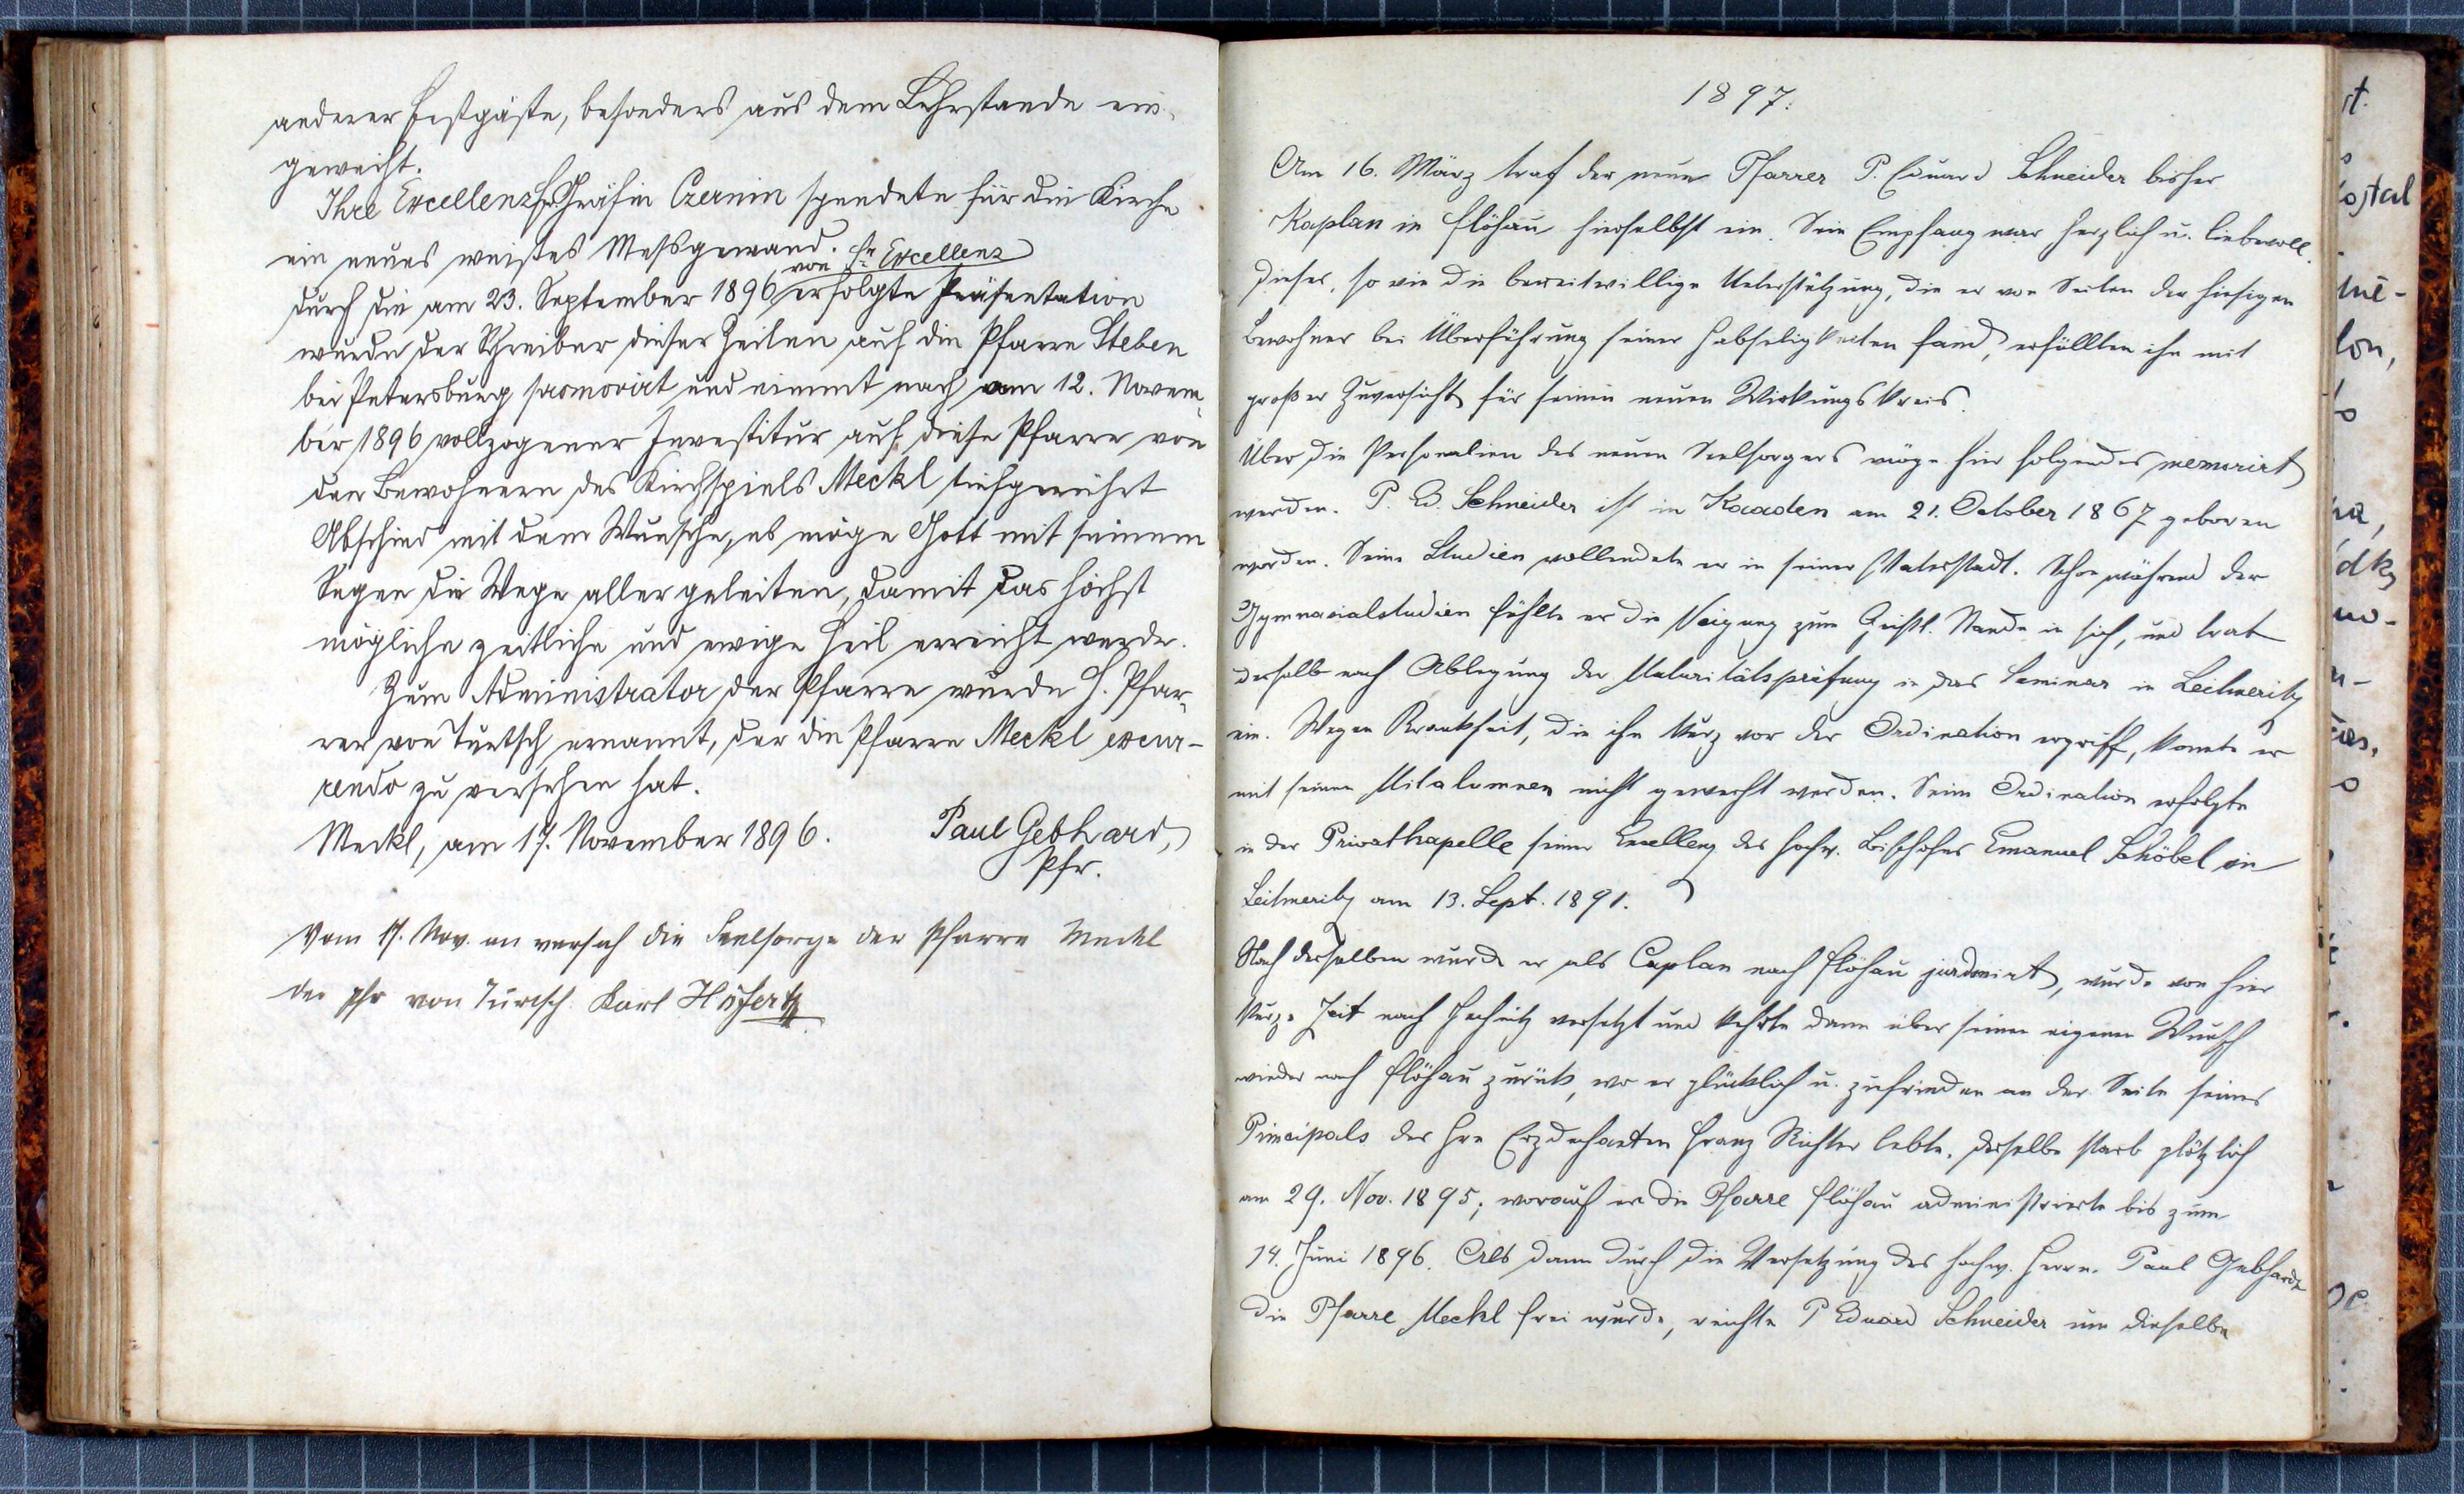 anderer Festgäste, besonders aus dem Lehrstande ein-
geweiht.
Ihre Excellenz Fr. Gräfin Czernin spendete für die Kirche
ein neues weißes Messgewand.
von Sr Excellenz
Durch die am 23. September 1896 erfolgte Präsentation
wurde der Schreiber dieser Zeilen auf die Pfarre Steben
bei Petersburg promovirt und nimmt nach am 12. Novem-
ber 1896 vollzogener Investitur auf diese Pfarre von
den Bewohnern des Kirchspiels Meckl tiefgerührt
Abschied mit dem Wunsche, es möge Gott mit seinem
Segen die Wege aller geleiten, damit das höchst
mögliche zeitliche und ewige Heil erreicht werde.
Zum Administrator der Pfarre wurde H. Pfar-
rer von Turtsch ernannt, der die Pfarre Meckl excur-
rendo zu versehen hat.
Meckl, am 17. November 1896.
Paul Gebhard,
Pfr.
Vom 17. Nov. an versah die Seelsorge der Pfarre Meckl
der Pfr von Turtsch Karl Höfer
1897.
Am 16. März traf der neue Pfarrer P. Eduard Schneider bisher
Kaplan in Flöhau hierselbst ein. Sein Empfang war herzlich u. liebevoll.
Dieser, so wie die bereitwillige Unterstützung, die er von Seiten der hiesigen
Bewohner bei Überführung seiner Habseligkeiten fand, erfüllten ihn mit
großer Zuversicht für seinen neuen Wirkungskreis.
Über die Personalien des neuen Seelsorgers möge hier folgendes memorirt
werden. P. Ed. Schneider ist in Kaaden am 21. October 1867 geboren
worden. Seine Studien vollendete er in seiner Vaterstadt. Schon während der
Gymnasialstudien fühlte er die Neigung zum Geistl. Stande in sich, und trat
derselbe nach Ablegung der Maturitätsprüfung in das Seminar in Leitmeritz
ein. Wegen Krankheit, die ihn kurz vor der Ordination ergriff, konnte er
mit seinen Mitalumnen nicht geweiht werden. Seine Ordination erfolgte
in der Privatkapelle seiner Excellenz des hochw. Bischofes Emanuel Schöbel in
Leitmeritz am 13. Sept. 1891.
Nach derselben wurde er als Caplan nach Flöhau, wurde von hier
kurze Zeit nach Jechnitz versetzt und kehrte dann über seinen eigenen Wunsch
wieder nach Flöhau zurück, wo er glücklich u. zufrieden an der Seite seines
Principals des Hrn Erzdechanten Franz Richter lebte. Derselbe starb plötzlich
am 29. Nov. 1895; worauf er die Pfarre Flöhau administrierte bis zum
14. Juni 1896. Als dann durch die Versetzung des hochw. Herrn. Paul Gebhardt
die Pfarre Meckl frei wurde, reichte P Eduard Schneider um dieselbe